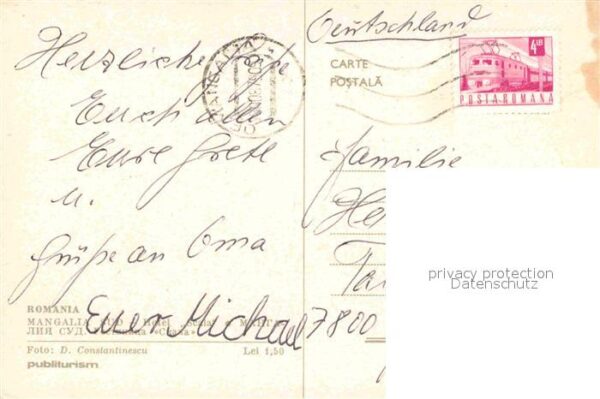 Herzliche Grüße
Euch allen
Eure Grete
u.
Grüße an Oma
Euer Michael
ROMANIA
MANGALIA
Foto: D. Constantinescu
Lei 1,50
publiturism
MANGALIA
Deutschland
CARTE
POŞTALĂ
4 LEI
POSTA ROMANA
Familie
He
Ta
7800
privacy protection
Datenschutz